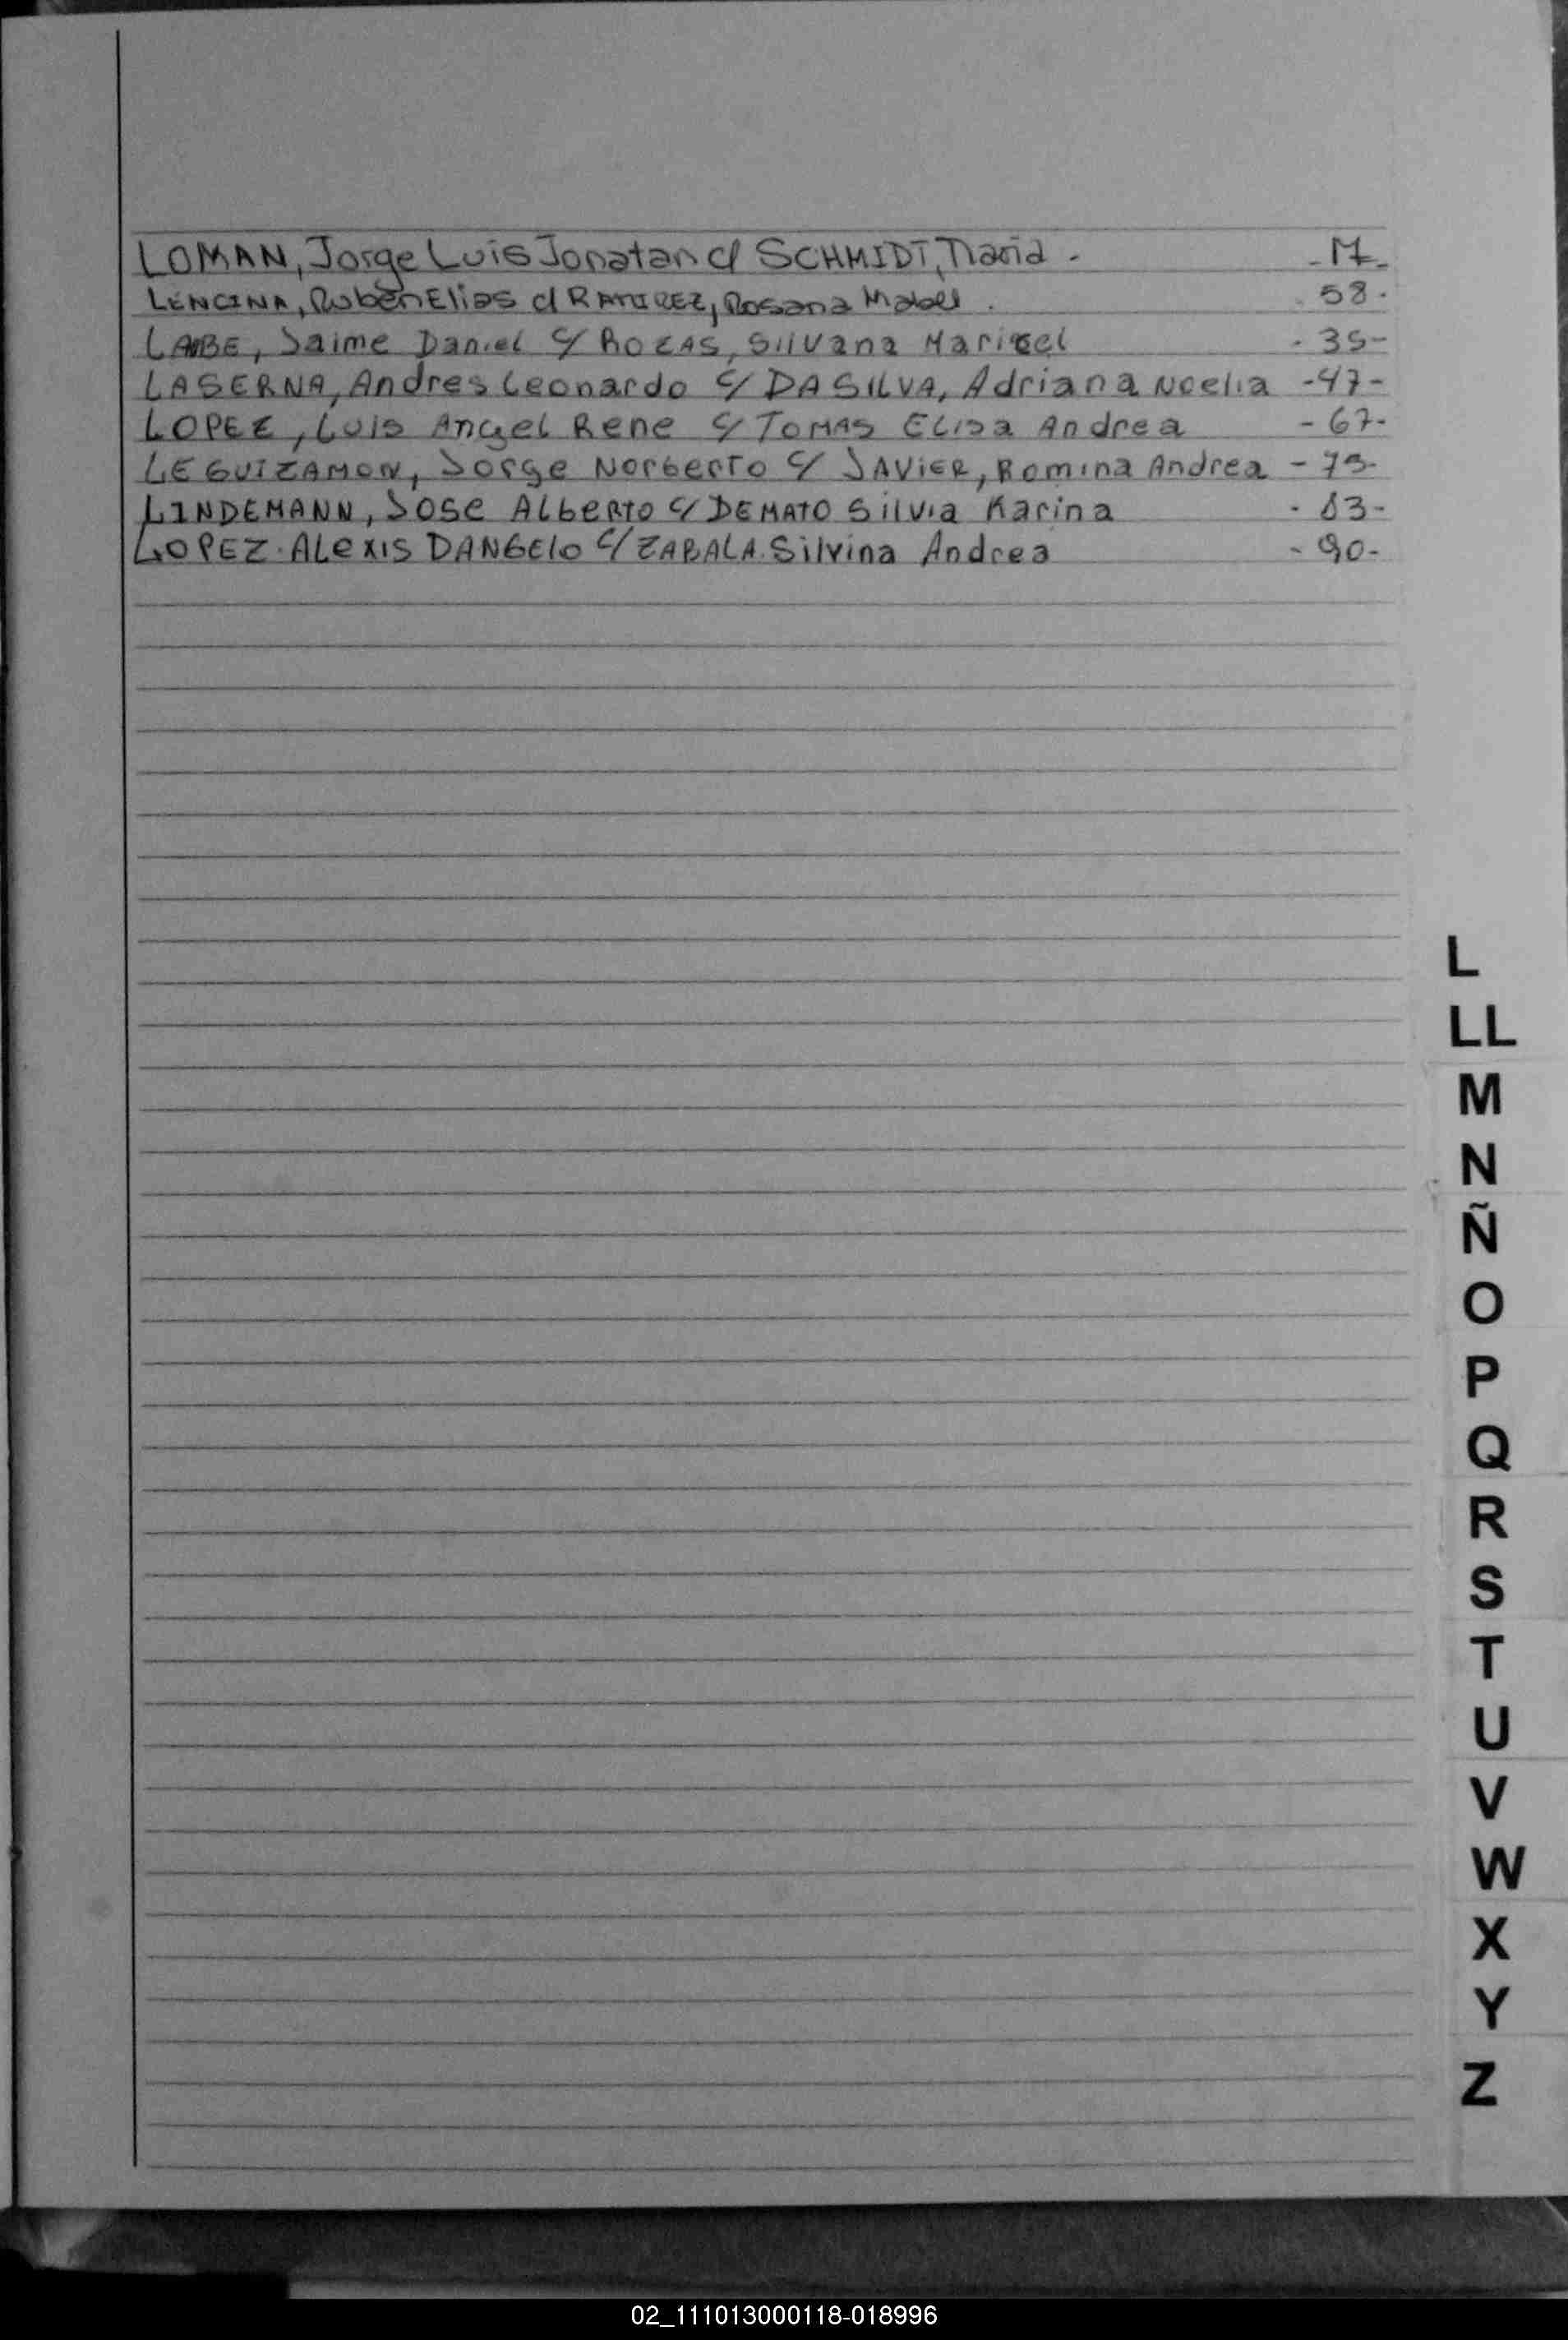 LOMAN, Jorge Luis Jonatan c/ SCHMIDT, María - - 17 -
LENCINA, Ruben Elias c/ RAMIREZ, Rosana Mabel . - 58 -
LABE, Jaime Daniel c/ ROZAS, Silvana Maricel - 35 -
LASERNA, Andres Leonardo c/ DA SILVA, Adriana Noelia - 47 -
LOPEZ, Luis Angel Rene c/ TOMAS Elisa Andrea - 67 -
LEGUIZAMON, Jorge Norberto c/ JAVIER, Romina Andrea - 75 -
LINDEMANN, Jose Alberto c/ DEMATO Silvia Karina - 83 -
LOPEZ. Alexis DANGElo c/ ZABALA. Silvina Andrea - 90 -
L
LL
M
N
Ñ
O
P
Q
R
S
T
U
V
W
X
Y
Z
02_111013000118-018996